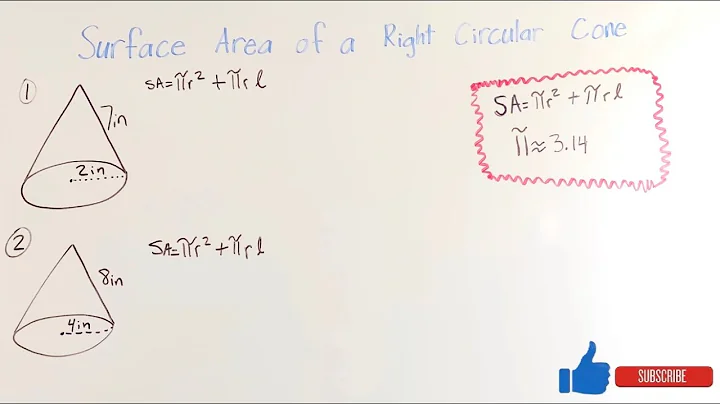 Surface Area of a Right Circular Cone
1
SA=πr²+πrl
7in
2in
SA=πr²+πrl
π≈3.14
2
SA=πr²+πrl
8in
4in
SUBSCRIBE